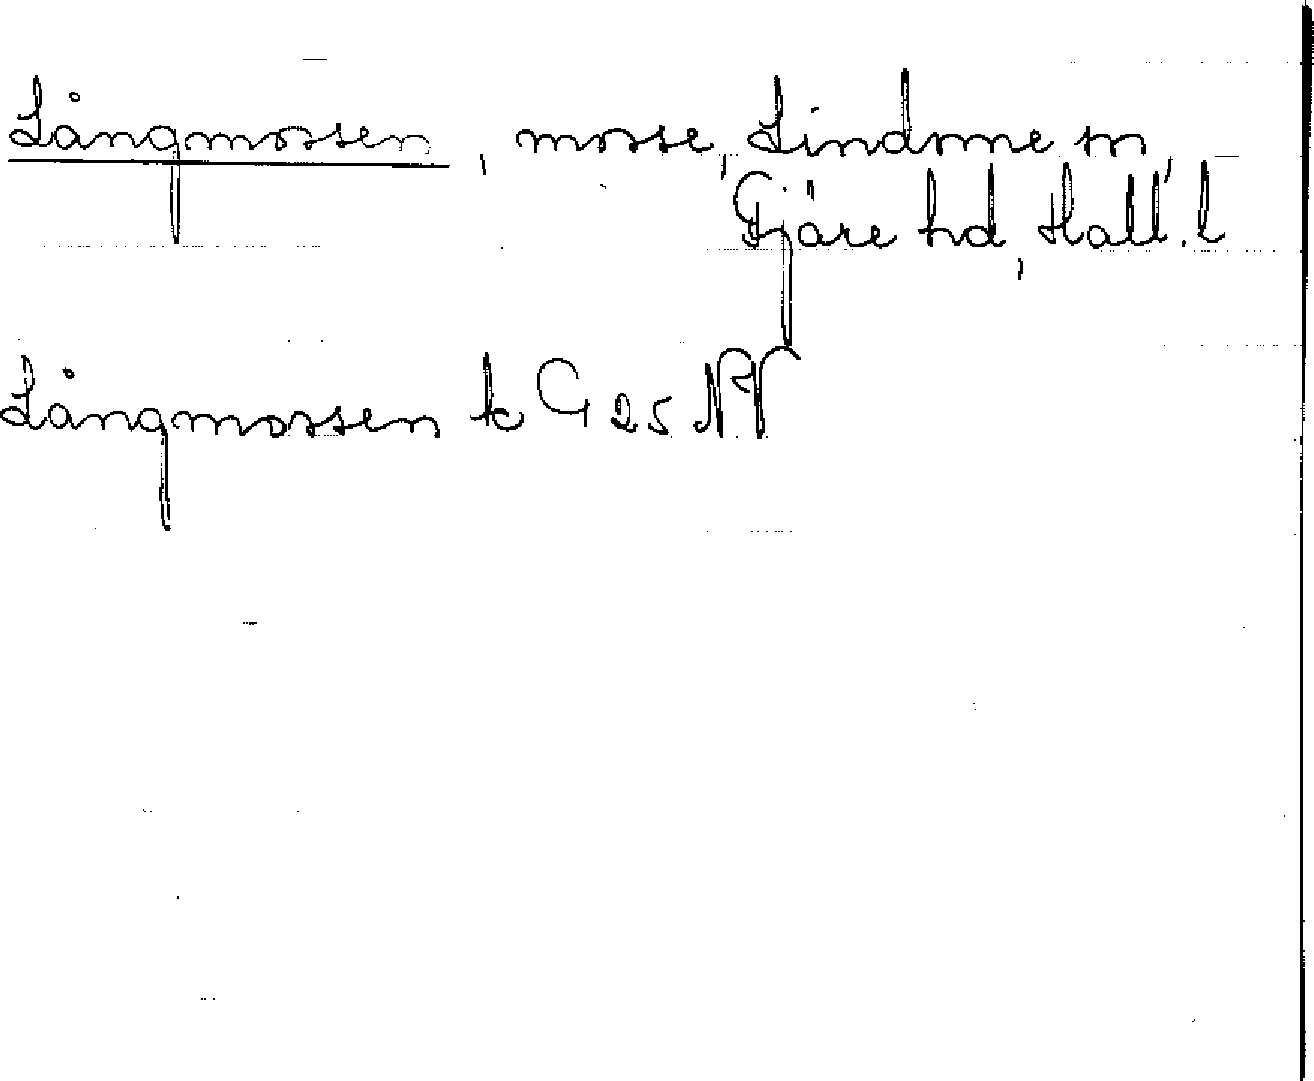 Långmossen, mosse, Lindome sn,
Fjäre hd, Hall. l
Långmossen tc G 25 NV